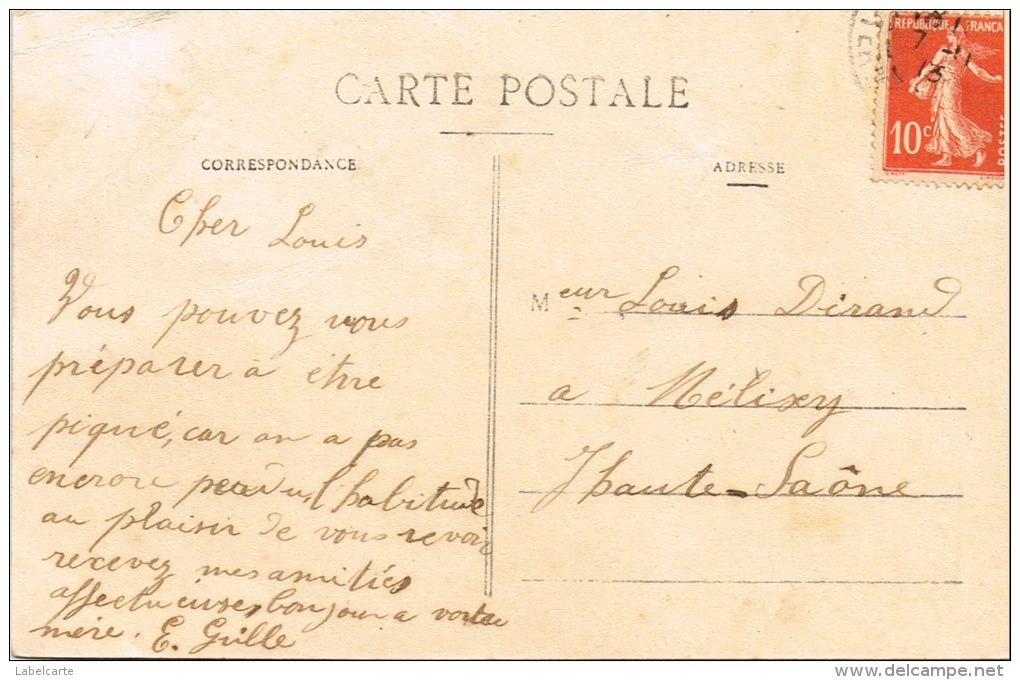 CARTE POSTALE
CORRESPONDANCE
Cher Louis
Vous pouvez vous
préparer à être
piqué, car on a pas
encrore perdu, l'habitude
au plaisir de vous revoir
recevez mes amitiés
affectueuses, bonjour a votre
mère. E. Grille
ADRESSE
Meur Louis Dirand
a Mélisey
Haute-Saône
REPUBLIQUE FRANCA
10c
POSTES
7
13
Labelcarte
www.delcampe.net